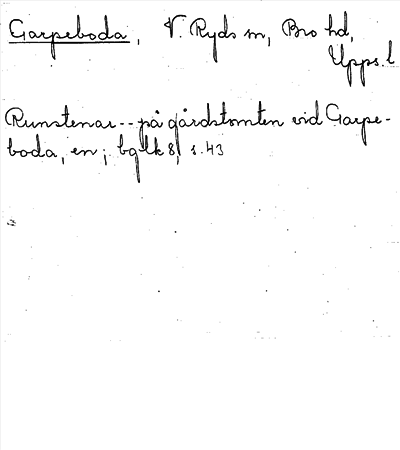 Garpeboda, V. Ryds sn, Bro hd,
Upps. l
Runstenar -- på gårdstomten vid Garpe-
boda, en; bglk 8, s. 43